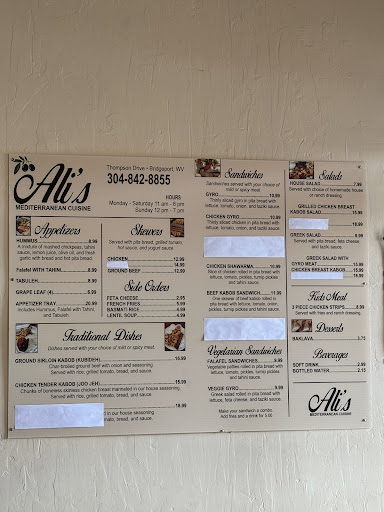 Ali's
MEDITERRANEAN CUISINE
Thompson Drive • Bridgeport, WV
304-842-8855
HOURS
Monday - Saturday 11 am - 8 pm
Sunday 12 pm - 7 pm
Appetizers
HUMMUS 8.99
A mixture of mashed chickpeas, tahini
sauce, lemon juice, olive oil, and fresh
garlic with bread and hot pita bread.
Falafel WITH TAHINI 8.99
TABULEH 8.99
GRAPE LEAF (4) 5.99
APPETIZER TRAY 20.99
Includes Hummus, Falafel with Tahini,
and Tabuleh
Skewers
Served with pita bread, grilled tomato,
hot sauce, and yogurt sauce.
CHICKEN 12.99
14.99
GROUND BEEF 12.99
Side Orders
FETA CHEESE 2.95
FRENCH FRIES 5.95
BASMATI RICE 4.99
LENTIL SOUP
Traditional Dishes
Dishes served with your choice of mild or spicy meat.
GROUND SIRLOIN KABOB (KUBIDEH) 15.99
Char-broiled ground beef with onion and seasoning.
Served with rice, grilled tomato, bread, and sauce.
CHICKEN TENDER KABOB (JOO JEH) 15.99
Chunks of boneless skinless chicken breast marinated in our house seasoning.
Served with rice, grilled tomato, bread, and sauce.
18.99
in our house seasoning.
bread, and sauce.
Sandwiches
Sandwiches served with your choice of
mild or spicy meat.
GYRO 10.99
Thinly sliced gyro in pita bread with
lettuce, tomato, onion, and taziki sauce
CHICKEN GYRO 10.99
Thinly sliced chicken in pita bread with
lettuce, tomato, onion, and taziki sauce
CHICKEN SHAWARMA 11.99
Slice of chicken rolled in pita bread with
lettuce, tomato, pickles, turnip pickles
and tahini sauce.
BEEF KABOB SANDWICH 11.99
One skewer of beef kabob rolled in
pita bread with lettuce, tomato, onion,
and taziki sauce
Vegetarian Sandwiches
FALAFEL SANDWICHES 9.99
Vegetable patties rolled in pita bread with
lettuce, tomato, pickles, turnip pickles
and tahini sauce.
VEGGIE GYRO 9.99
Greek salad rolled in pita bread with
lettuce, feta cheese, and taziki sauce.
Make your sandwich a combo.
Add fries and a drink for 5.00
Salads
HOUSE SALAD 7.99
Served with choice of homemade house
or ranch dressing.
GRILLED CHICKEN BREAST
KABOB SALAD 15.99
18.99
GREEK SALAD
Served with pita bread, feta cheese
GREEK SALAD WITH
GYRO MEAT 15.99
CHICKEN BREAST KABOB 15.99
18.99
Kids Meal
3 PIECE CHICKEN STRIPS 8.99
Served with fries and ranch dressing.
Desserts
BAKLAVA 3.75
Beverages
SOFT DRINK 2.99
BOTTLED WATER 2.15
Ali's
MEDITERRANEAN CUISINE